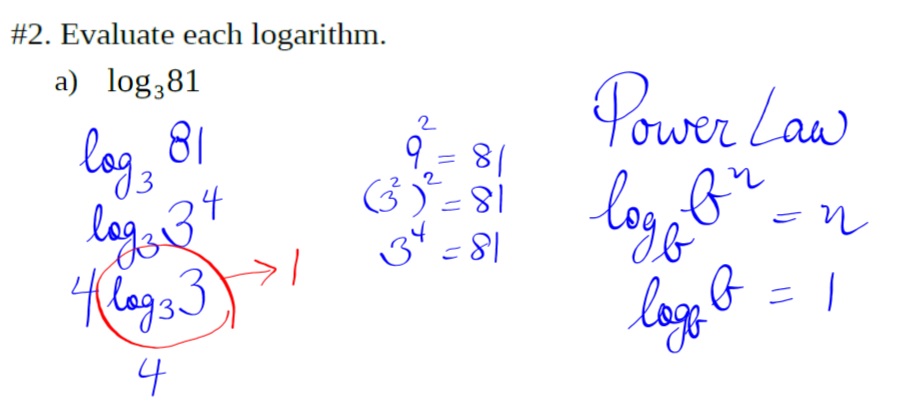 #2. Evaluate each logarithm.
a) log₃81
log₃ 81
log₃ 3⁴
4 log₃ 3 → 1
4
9² = 81
(3²)² = 81
3⁴ = 81
Power Law
log_b bⁿ = n
log_b b = 1